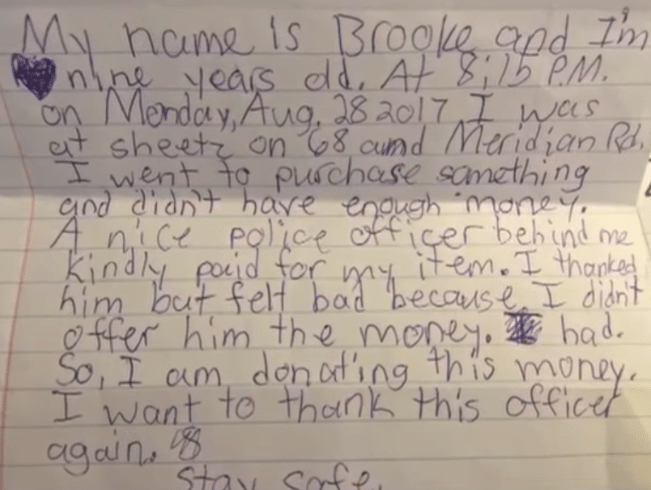 My name is Brooke and I'm
nine years old. At 8:15 P.M.
on Monday, Aug. 28 2017 I was
at sheetz on 68 amd Meridian Rd.
I went to purchase something
and didn't have enough money.
A nice police officer behind me
kindly paid for my item. I thanked
him but felt bad because I didn't
offer him the money. had.
So, I am donating this money.
I want to thank this officer
again.
Stay safe.